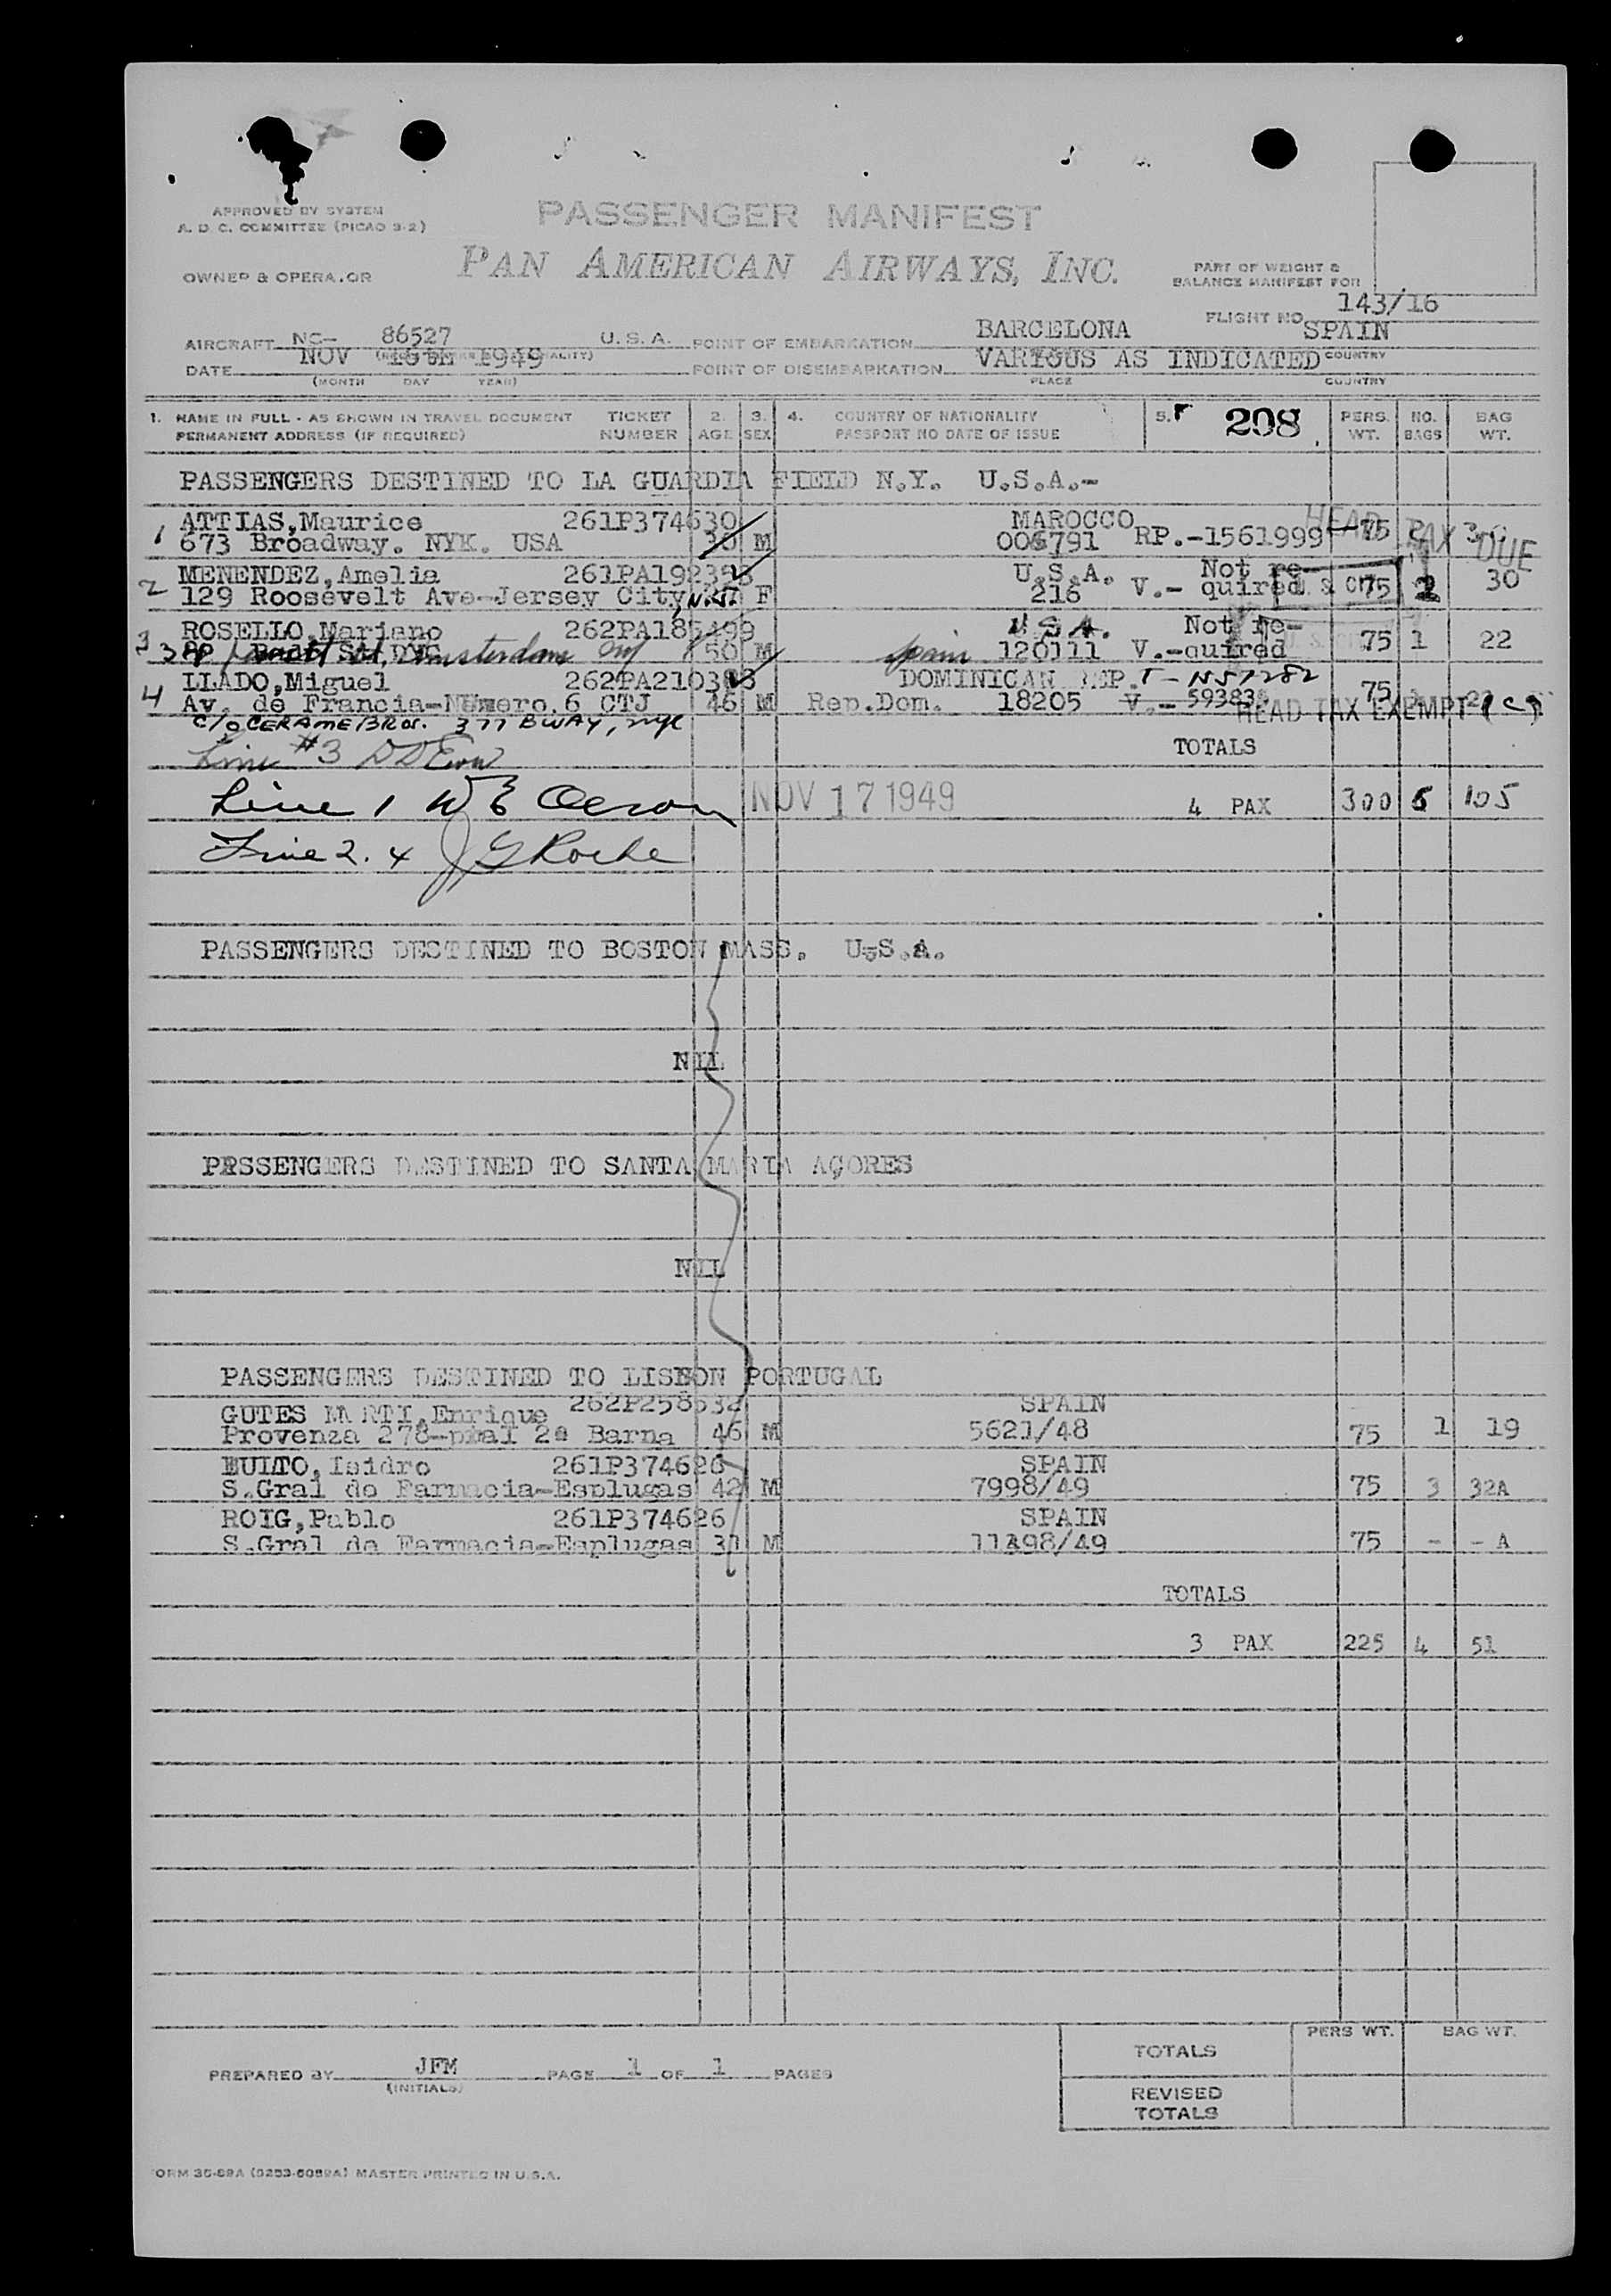 APPROVED BY SYSTEM
A. D. C. COMMITTEE (PICAO 3-2)
PASSENGER MANIFEST
OWNER & OPERA.OR
PAN AMERICAN AIRWAYS, INC.
PART OF WEIGHT &
BALANCE MANIFEST FOR
FLIGHT NO. 143/16
AIRCRAFT NC- 86527 U. S. A. POINT OF EMBARKATION BARCELONA SPAIN
DATE NOV 16th 1949 POINT OF DISEMBARKATION VARIOUS AS INDICATED COUNTRY
(MONTH DAY YEAR) PLACE COUNTRY
1. NAME IN FULL - AS SHOWN IN TRAVEL DOCUMENT TICKET 2. 3. 4. COUNTRY OF NATIONALITY 5. 208 PERS. NO. BAG
PERMANENT ADDRESS (IF REQUIRED) NUMBER AGE SEX PASSPORT NO DATE OF ISSUE WT. BAGS WT.
PASSENGERS DESTINED TO LA GUARDIA FIELD N.Y. U.S.A.-
1 ATTIAS,Maurice 261P374630 MAROCCO HEAD TAX DUE
673 Broadway. NYK. USA 30 M 006791 RP.-1561999 75
2 MENENDEZ,Amelia 261PA192393 U.S.A. Not re-
129 Roosevelt Ave-Jersey City F 216 V.- quired 75 2 30
3 ROSELLO,Mariano 262PA185499 U S A. Not re-
St, Amsterdam NY 50 M Spain 120111 V.-quired 75 1 22
4 LLADO,Miguel 262PA210393 DOMINICAN REP. T-N57282
Av. de Francia-Numero.6 CTJ 46 M Rep.Dom. 18205 V.- 59383 75
c/o CERAME BROS. 377 BWAY, NYC HEAD TAX EXEMPT
Line #3 TOTALS
Line 1 W E NOV 17 1949 4 PAX 300 6 105
Line 2. 4 J G Roche
PASSENGERS DESTINED TO BOSTON MASS. U.S.A.
NIL
PASSENGERS DESTINED TO SANTA MARIA AÇORES
NIL
PASSENGERS DESTINED TO LISBON PORTUGAL
GUTES MARTI,Enrique 262P258532 SPAIN
Provenza 278-pral 2ª Barna 46 M 5621/48 75 1 19
BUITO,Isidro 261P374626 SPAIN
S.Gral de Farmacia-Esplugas 42 M 7998/49 75 3 32A
ROIG,Pablo 261P374626 SPAIN
S.Gral de Farmacia-Esplugas 31 M 11498/49 75 - - A
TOTALS
3 PAX 225 4 51
PERS WT. BAG WT.
TOTALS
PREPARED BY JFM PAGE 1 OF 1 PAGES
(INITIALS)
REVISED
TOTALS
FORM 36-69A MASTER PRINTED IN U.S.A.